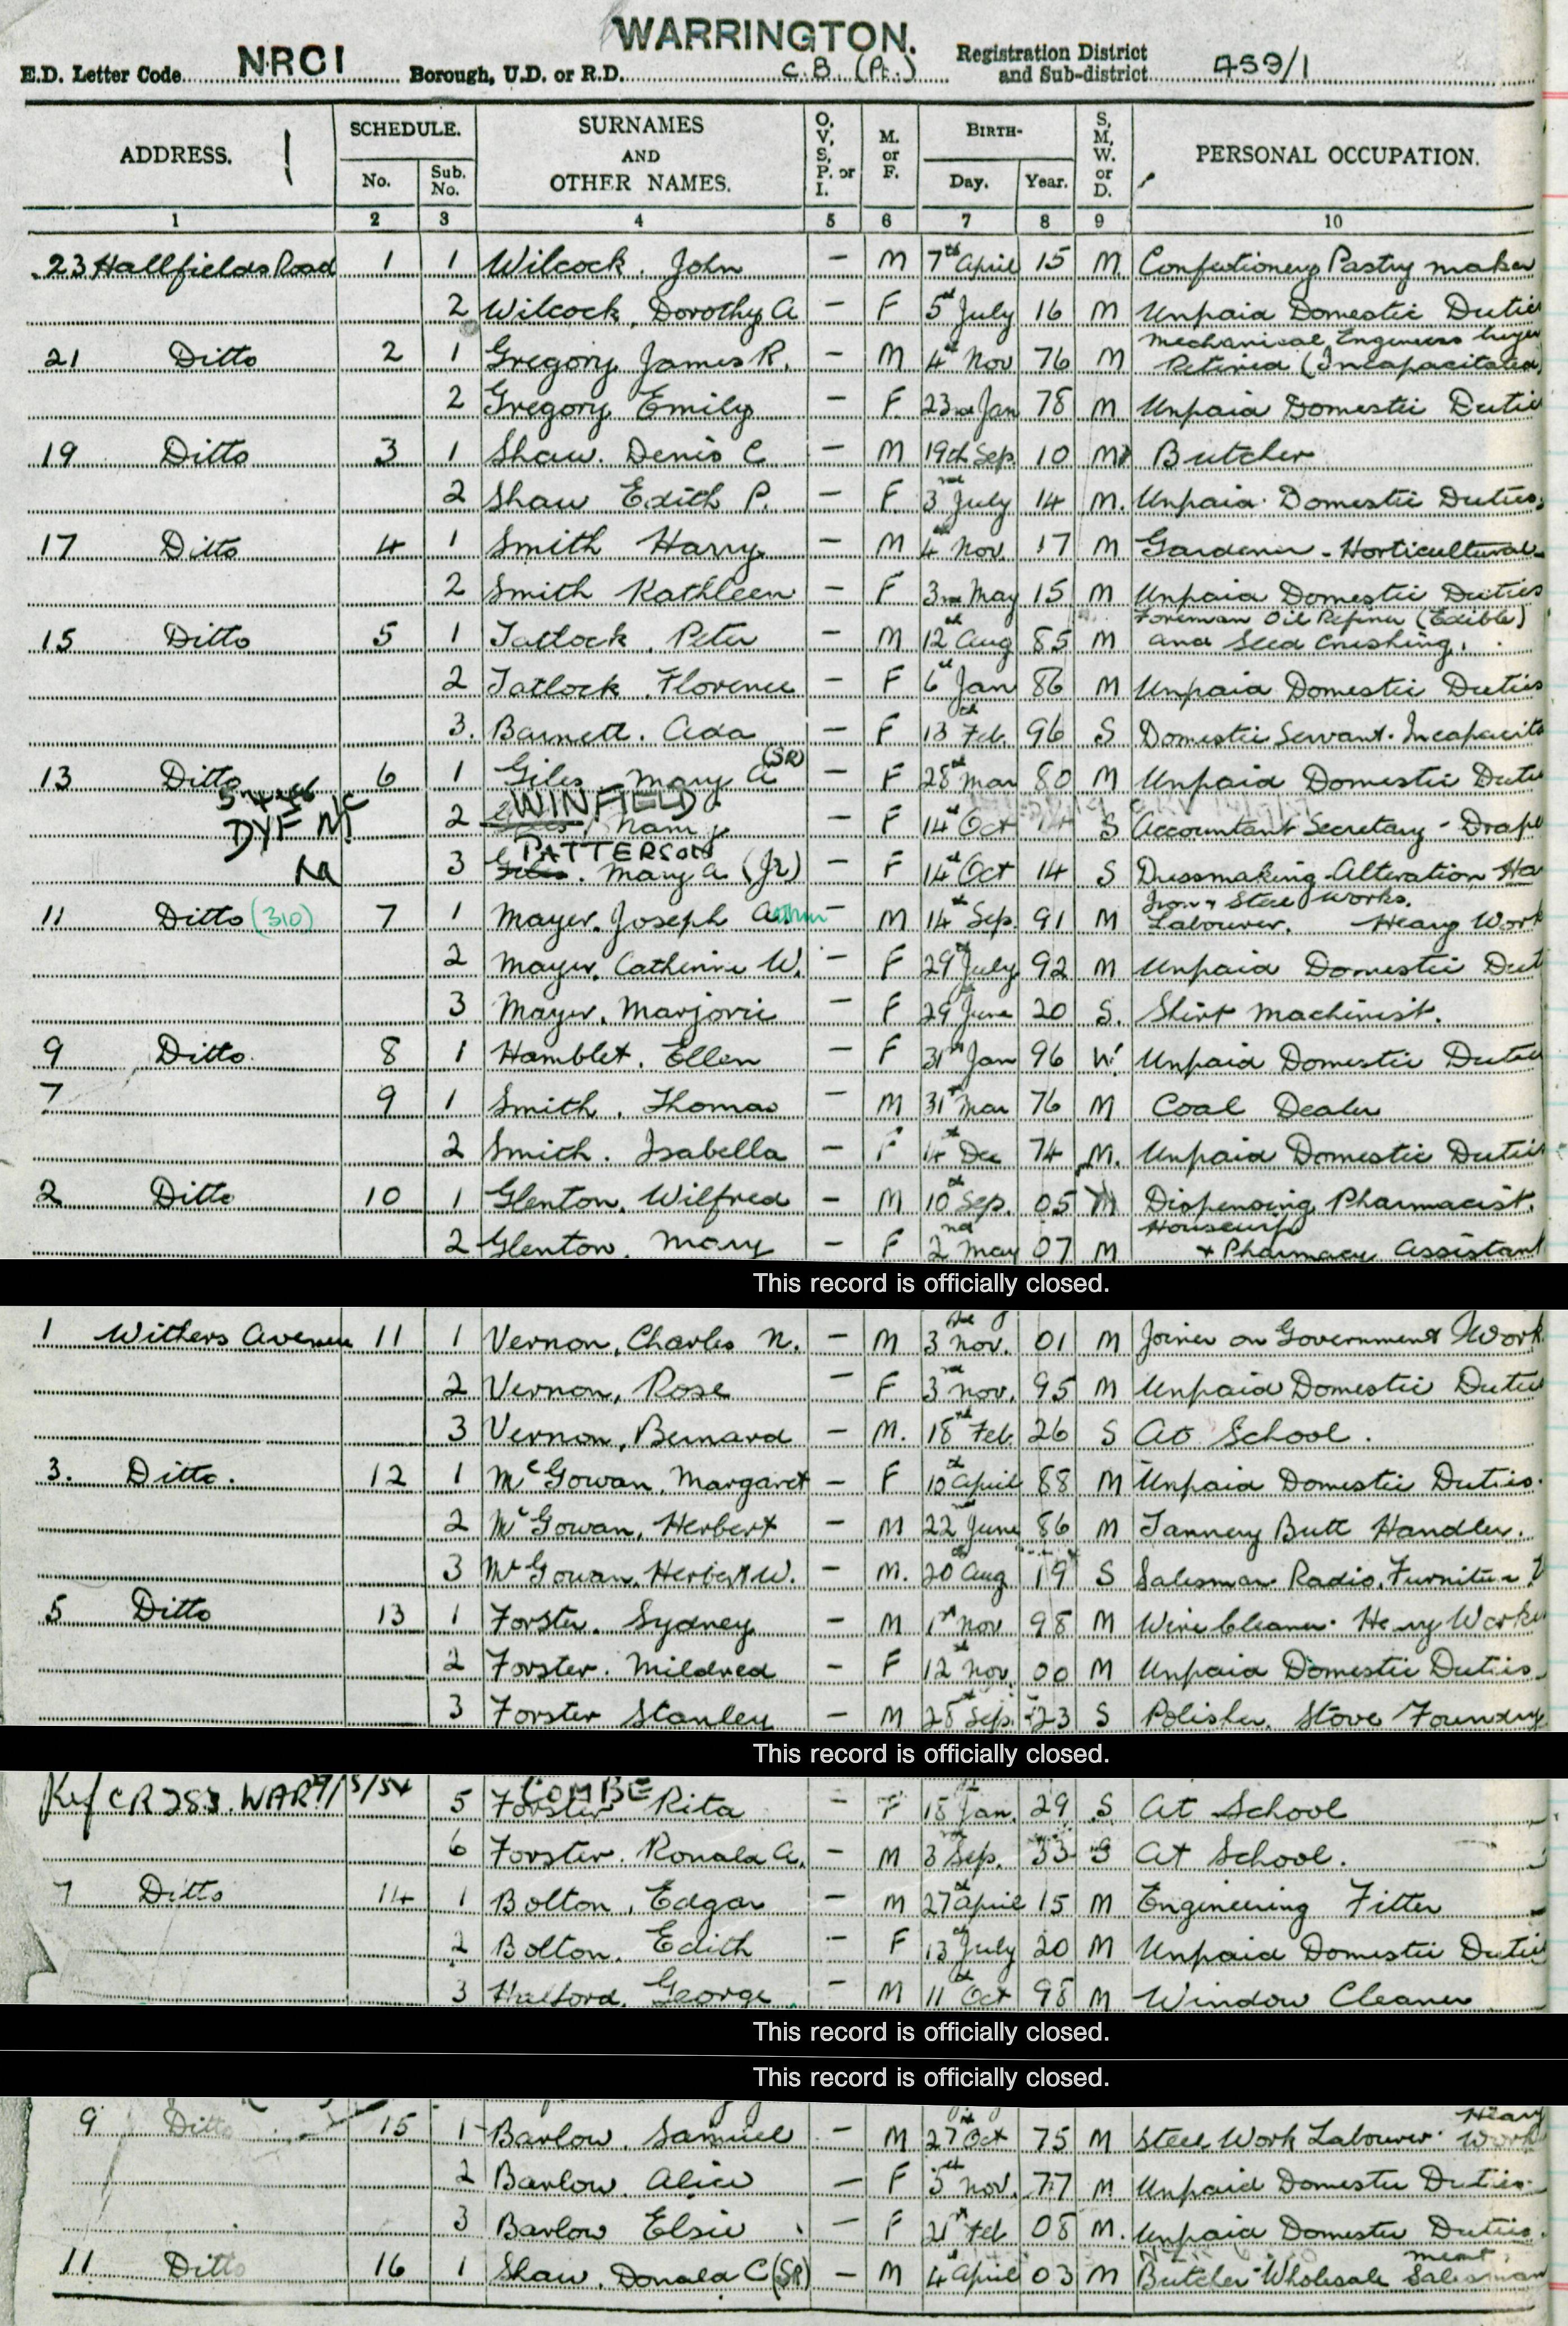 WARRINGTON.
E.D. Letter Code NRCI Borough, U.D. or R.D. C.B. (Pt.) Registration District and Sub-district 459/1
ADDRESS. SCHEDULE. No. Sub. No. SURNAMES AND OTHER NAMES. O, V, S, P. or I. M. or F. BIRTH- Day. Year. S, M, W. or D. PERSONAL OCCUPATION.
1 2 3 4 5 6 7 8 9 10
23 Hallfields Road 1 1 Wilcock. John – M 7th April 15 M Confectionery Pastry maker
2 Wilcock, Dorothy A – F 5 July 16 M Unpaid Domestic Dutie
21 Ditto 2 1 Gregory James R. – M 4 Nov 76 M Mechanical Engineers buyer Retired (Incapacitated)
2 Gregory Emily – F 23rd Jan 78 M Unpaid Domestic Dutie
19 Ditto 3 1 Shaw. Denis C – M 19th Sep 10 M Butcher
2 Shaw Edith P. – F 3rd July 14 M. Unpaid Domestic Duties
17 Ditto 4 1 Smith Harry – M 4 Nov 17 M Gardener - Horticultural
2 Smith Kathleen – F 3rd May 15 M Unpaid Domestic Duties
15 Ditto 5 1 Tatlock, Peter – M 12 Aug 85 M Foreman Oil Refiner (Edible) and Seed Crushing.
2 Tatlock. Florence – F 6 Jan 86 M Unpaid Domestic Duties
3. Barnett. Ada – F 13 Feb. 96 S Domestic Servant. Incapacita
13 Ditto 6 1 Giles Mary A (SR) – F 28 Mar 80 M Unpaid Domestic Dutie
DYF
2 WINFIELD – F 14 Oct S Accountant Secretary - Drape
3 PATTERSON Giles. Mary A. (Jr) – F 14 Oct 14 S Dressmaking Alteration Ha
11 Ditto (310) 7 1 Mayer. Joseph Arthur – M 14 Sep. 91 M Iron & Steel Works. Labourer. Heavy Work
2 Mayer, Catherine W. – F 29 July 92 M Unpaid Domestic Dut
3 Mayer. Marjorie – F 29 June 20 S. Shirt Machinist.
9 Ditto. 8 1 Hamblet. Ellen – F 31st Jan 96 W. Unpaid Domestic Dutie
7 9 1 Smith. Thomas – M 31st Mar 76 M Coal Dealer
2 Smith. Isabella – F 14 Dec 74 M. Unpaid Domestic Duties
2 Ditto 10 1 Glenton, Wilfred – M 10 Sep. 05 M Dispensing Pharmacist.
2 Glenton. Mary – F 2nd May 07 M Housewife + Pharmacy Assistant
This record is officially closed.
1 Withers Avenue 11 1 Vernon, Charles N. – M 3 Nov. 01 M Joiner on Government Work
2 Vernon, Rose – F 3rd Nov. 95 M Unpaid Domestic Dutie
3 Vernon, Bernard – M. 18 Feb. 26 S At School.
3. Ditto. 12 1 McGowan, Margaret – F 10 April 88 M Unpaid Domestic Duties.
2 McGowan, Herbert – M 22 June 86 M Tannery Butt Handler.
3 McGowan, Herbert W. – M. 20 Aug 19 S Salesman Radio, Furniture
5 Ditto 13 1 Forster. Sydney – M 1st Nov 98 M Wire Cleaner. Heavy Worke
2 Forster. Mildred – F 12 Nov. 00 M Unpaid Domestic Duties
3 Forster Stanley – M 28 Sep. 23 S Polisher. Stove Foundry
This record is officially closed.
Ref CR 283. WAR 5/54 5 COMBE Forster Rita – F 18 Jan. 29 S At School
6 Forster. Ronald A. – M 3 Sep. 33 S At School.
7 Ditto 14 1 Bolton, Edgar – M 27 April 15 M Engineering Fitter
2 Bolton. Edith – F 13 July 20 M Unpaid Domestic Dutie
3 Halford. George – M 11 Oct 98 M Window Cleaner
This record is officially closed.
This record is officially closed.
9 Ditto 15 1 Barlow. Samuel – M 27 Oct 75 M Steel Work Labourer. Heavy Work
2 Barlow. Alice – F 5th Nov. 77 M Unpaid Domestic Duties
3 Barlow Elsie – F 21st Feb 08 M. Unpaid Domestic Duties.
11 Ditto 16 1 Shaw. Donald C (SR) – M 4 April 03 M Butcher Wholesale meat Salesman